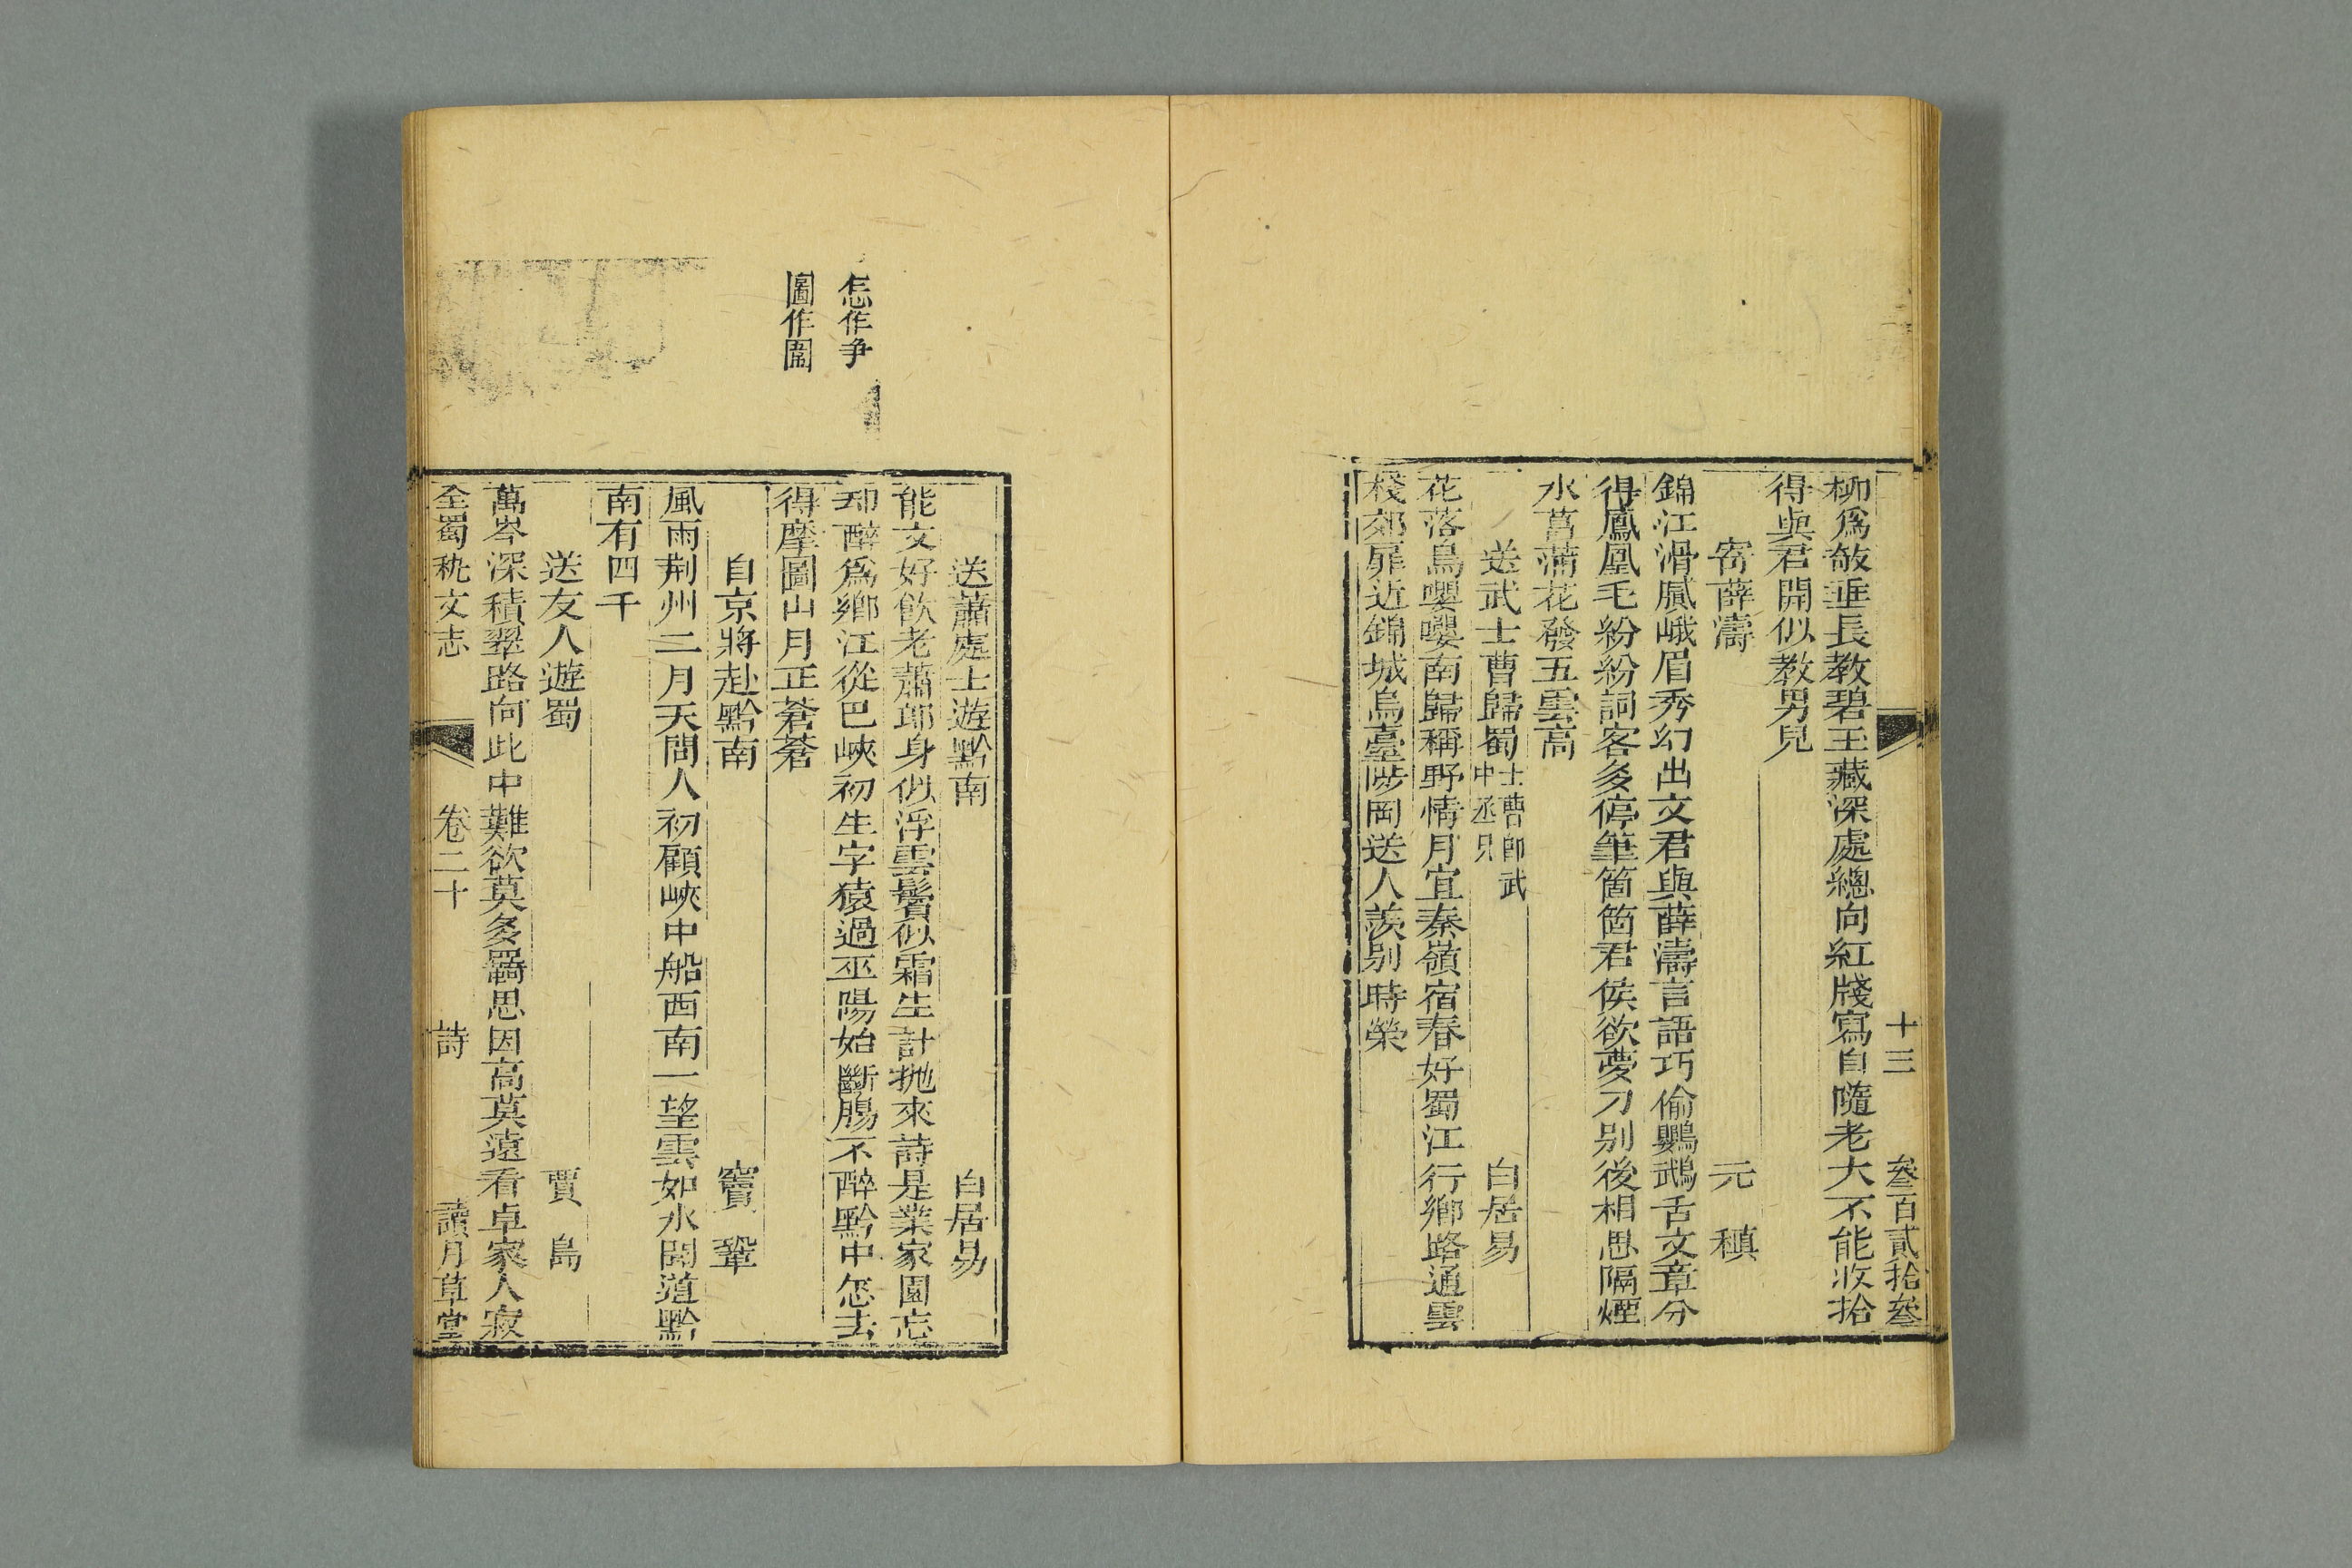 十三 叄百貳拾叄
栁爲敧垂長教碧玉藏深處總向紅牋寫自隨老大不能收拾
得與君開似教男兒
寄薛濤 元稹
錦江滑膩峨眉秀幻出文君與薛濤言語巧偷鸚鵡舌文章分
得鳳凰毛紛紛詞客多停筆箇箇君侯欲夢刀别後相思隔煙
水菖蒲花發五雲高
送武士曹歸蜀 士曹卽武中丞兄 白居易
花落鳥嚶嚶南歸稱野情月宜秦嶺宿春好蜀江行鄉路通雲
棧郊扉近錦城烏臺陟岡送人羨别時榮
怎作争
圖作圍
送蕭處士遊黔南 白居易
能文好飲老蕭郎身似浮雲鬢似霜生計抛來詩是業家園忘
却醉爲鄉江從巴峽初生字猿過巫陽始斷腸不醉黔中怎去
得摩圖山月正蒼蒼
自京將赴黔南 竇鞏
風雨荆州二月天問人初顧峽中船西南一望雲如水聞道黔
南有四千
送友人遊蜀 賈島
萬岑深積翠路向此中難欲莫多羈思因高莫遠看卓家人寂
全蜀秇文志 卷二十 詩 讀月草堂